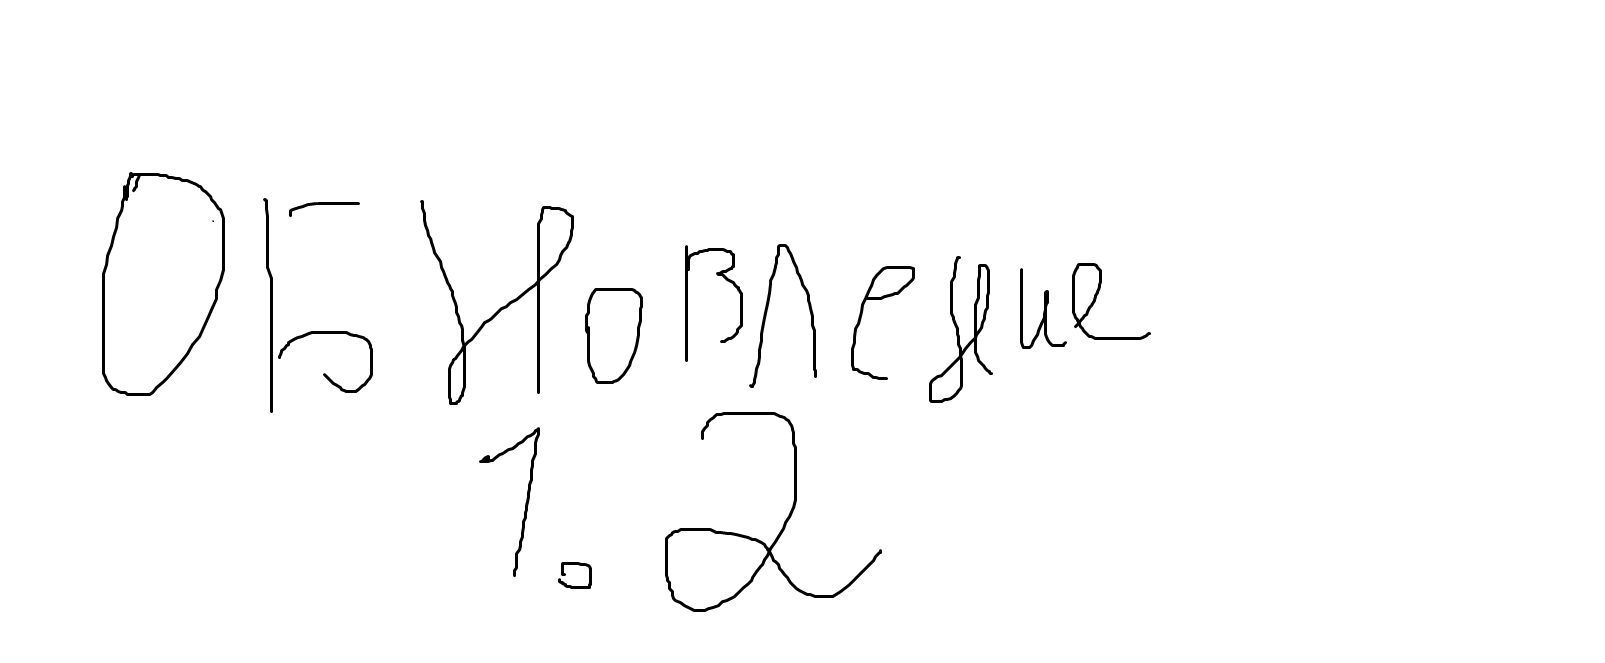 ОБНовление
1.2